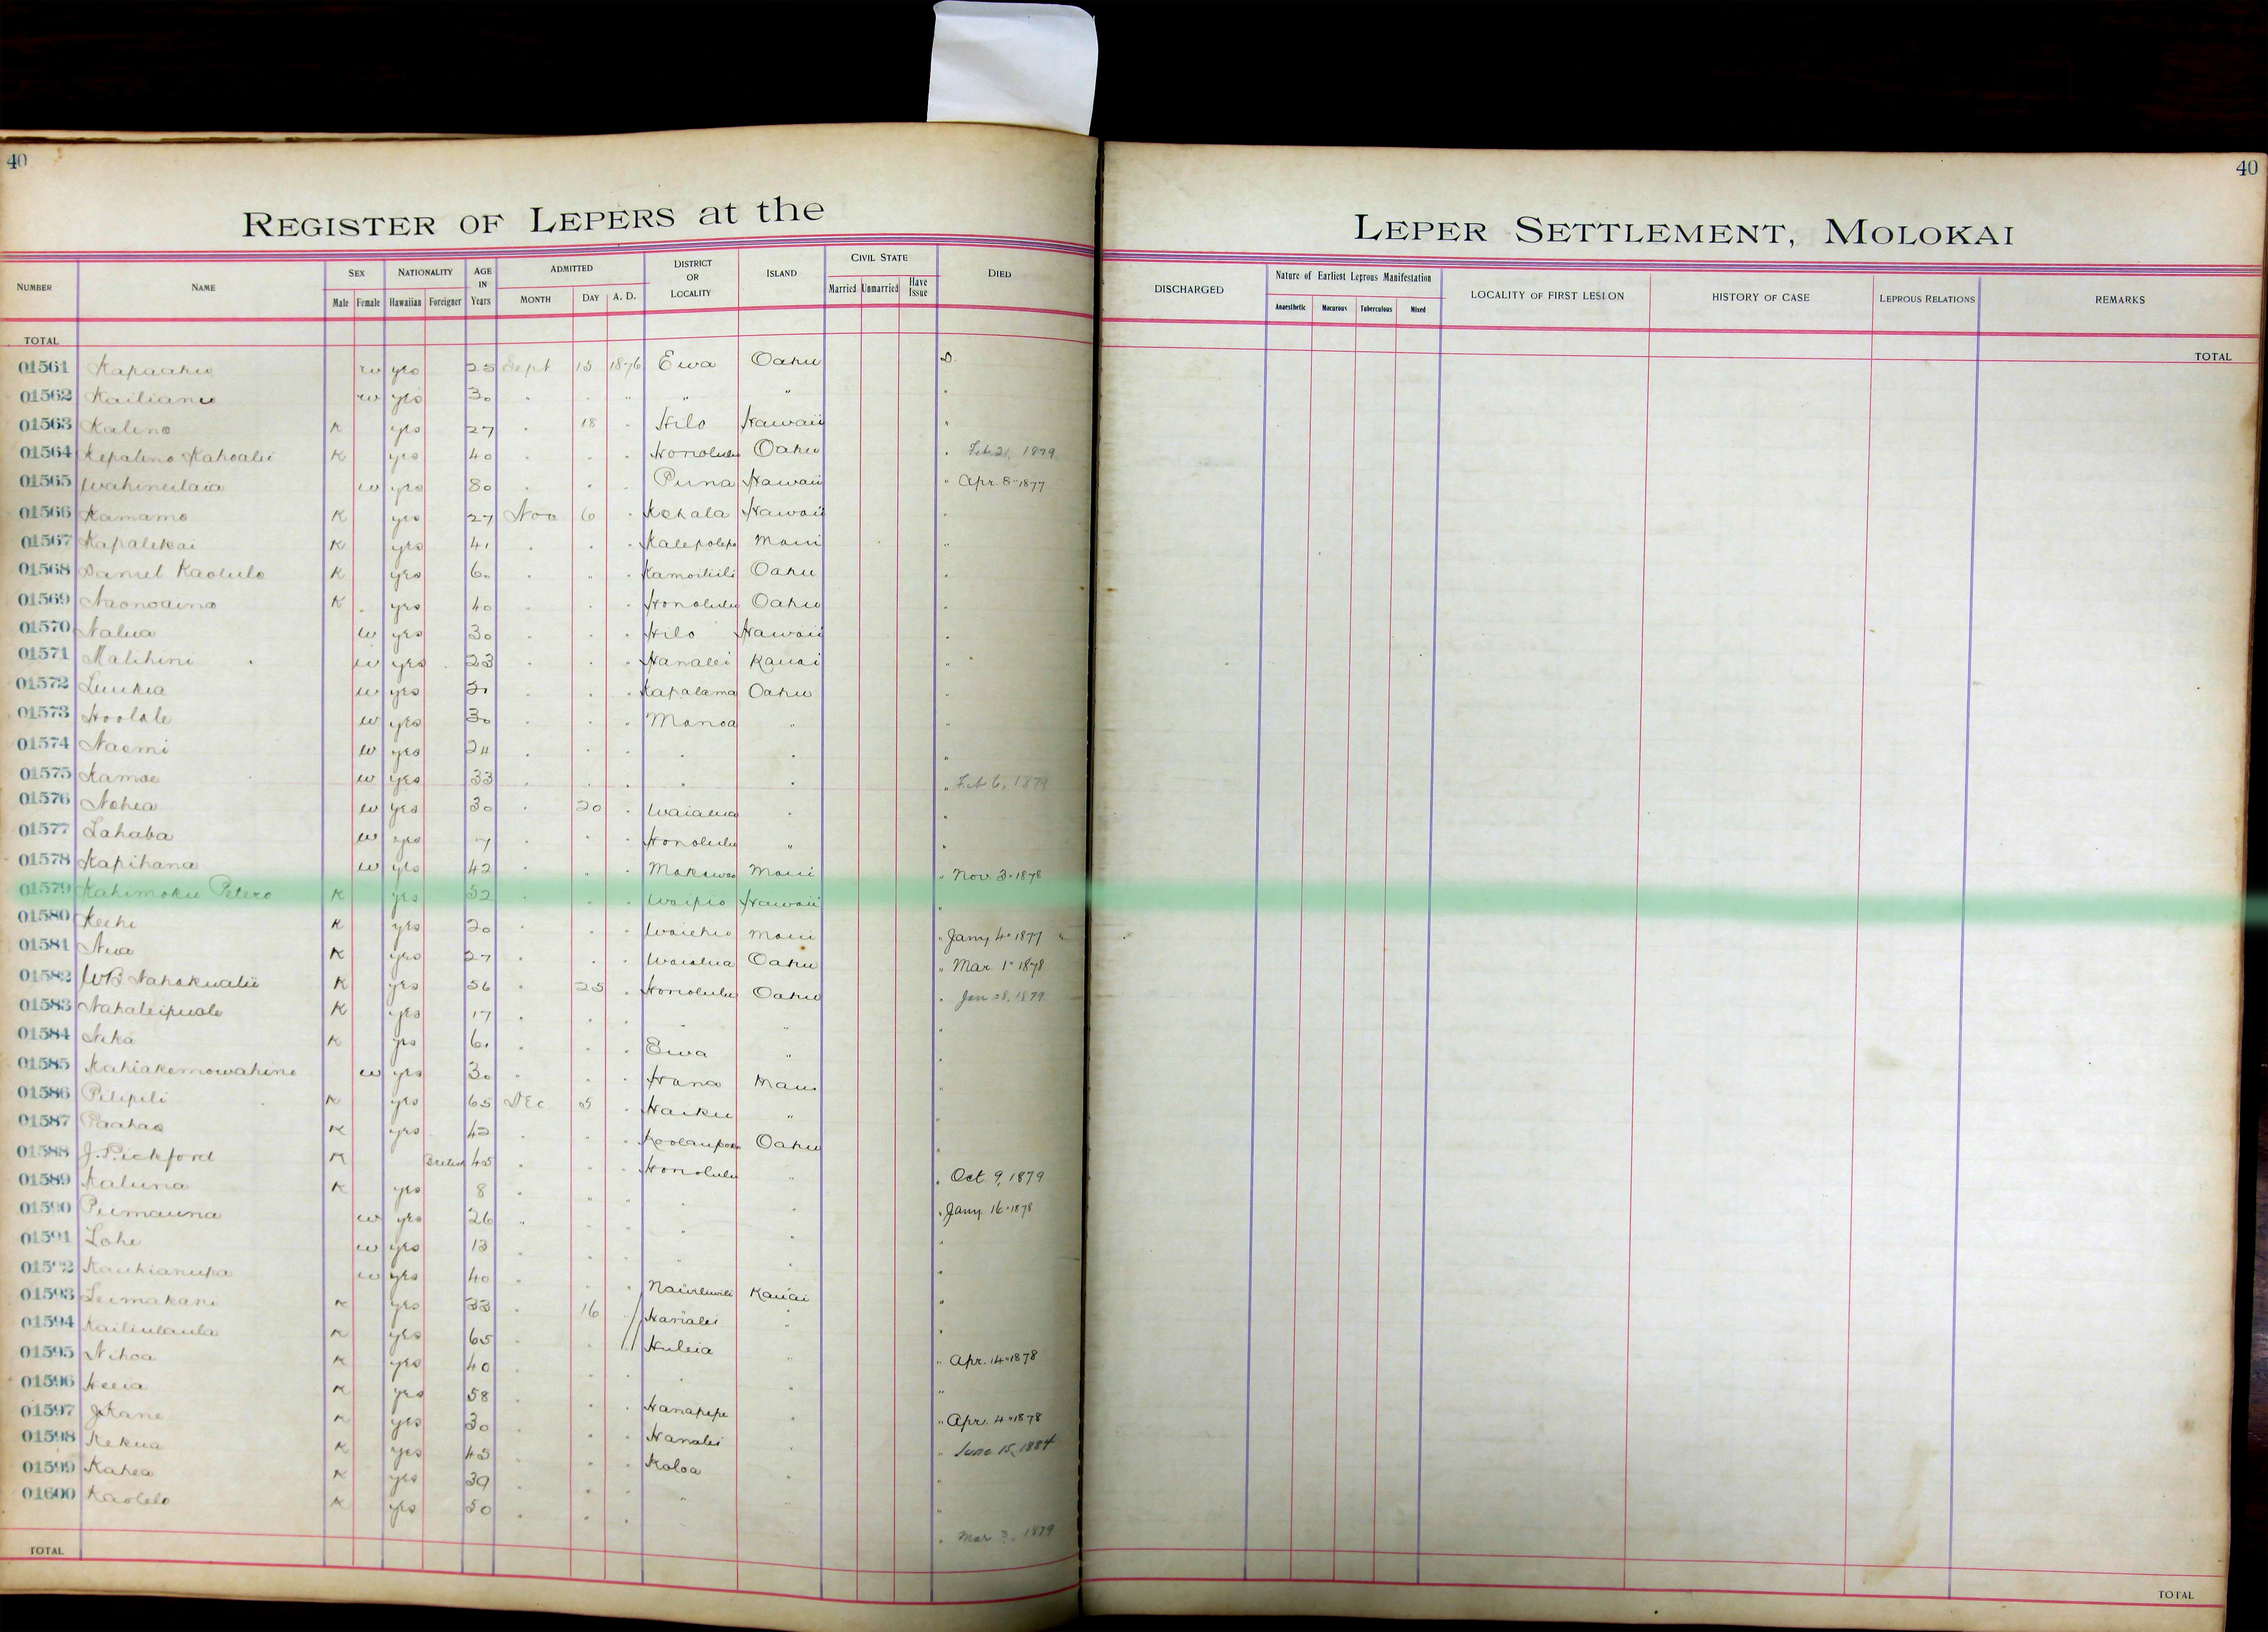 40
REGISTER OF LEPERS at the
NUMBER NAME SEX Male Female NATIONALITY Hawaiian Foreigner AGE IN Years ADMITTED MONTH DAY A. D. DISTRICT OR LOCALITY ISLAND CIVIL STATE Married Unmarried Have Issue DIED
TOTAL
01561 Kapaahu w yes 25 Sept 15 1876 Ewa Oahu D.
01562 Kailianu w yes 30 " " " " " "
01563 Kalino K yes 27 " 18 " Hilo Hawaii "
01564 Kepalino Kahoalii K yes 40 " " " Honolulu Oahu " Feb 21, 1879
01565 Wahineilaia w yes 80 " " " Puna Hawaii " Apr. 8-1877
01566 Kamamo K yes 27 Nov 6 " Kohala Hawaii "
01567 Kapalikai K yes 41 " " " Kalepolepo Maui "
01568 Daniel Kaolulo K yes 60 " " " Kamoiliili Oahu "
01569 K yes 40 " " " Honolulu Oahu "
01570 Nalua w yes 30 " " " Hilo Hawaii "
01571 Malihini w yes 23 " " " Hanalei Kauai "
01572 Luukia w yes " " " Kapalama Oahu "
01573 Hoolale w yes 30 " " " Manoa " "
01574 Naomi w yes 24 " " " " " "
01575 Kamae w yes 33 " " " " " " Feb 6, 1879
01576 Nohea w yes 30 " 20 " Waialua " "
01577 Lahaba w yes 7 " " " Honolulu " "
01578 Kapihana w yes 42 " " " Makawao Maui " Nov. 3-1878
01579 Kahimoku Petero K yes 52 " " " Waipio Hawaii "
01580 Keehi K yes 20 " " " Waiehu Maui " Jany 4-1877 "
01581 Nua K yes 27 " " " Waialua Oahu " Mar. 1-1878
01582 WB Nahokualii K yes 56 " 25 " Honolulu Oahu " Jan 28, 1879
01583 Nahaleipuale K yes 17 " " " " " "
01584 Nika K yes 61 " " " Ewa " "
01585 Kahiakemowahine w yes 30 " " " Hana Maui "
01586 Pilipili K yes 65 Dec 5 " Haiku " "
01587 Paahao K yes 42 " " " Koolaupoko Oahu "
01588 J. Pickford K British 45 " " " Honolulu " " Oct. 9, 1879
01589 Kaluna K yes 8 " " " " " " Jany 16-1878
01590 Puimauna w yes 26 " " " " " "
01591 Lohe w yes 13 " " " " " "
01592 Kauhianupa w yes 40 " " " Nawiliwili Kauai "
01593 Leimakani K yes 33 " 16 " Hanalei " "
01594 Kailiulaula K yes 65 " " " Huleia " " Apr. 14-1878
01595 Nihoa K yes 40 " " " " " "
01596 Heeia K yes 58 " " " Hanapepe " " Apr. 4-1878
01597 J Kane K yes 30 " " " Hanalei " " June 15, 1884
01598 Kekua K yes 45 " " " Koloa " "
01599 Kahea K yes 39 " " " " " "
01600 Kaolelo K yes 50 " " " " Mar 3, 1879
TOTAL
40
LEPER SETTLEMENT, MOLOKAI
DISCHARGED Nature of Earliest Leprous Manifestation Anaesthetic Macurous Tuberculous Mixed LOCALITY OF FIRST LESION HISTORY OF CASE LEPROUS RELATIONS REMARKS
TOTAL
TOTAL